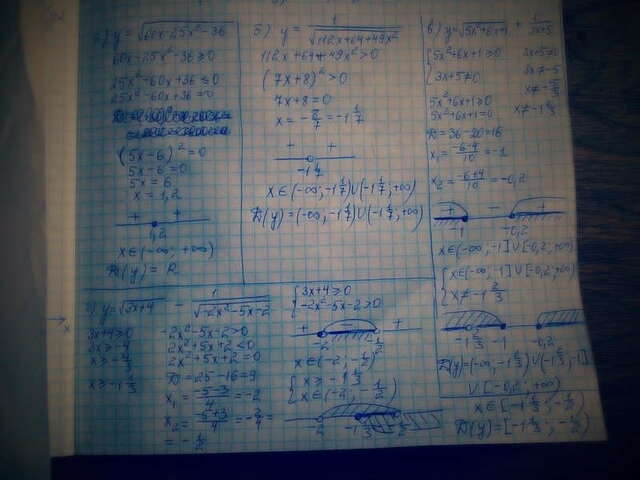 а) y = √(60x-25x²-36)
60x-25x²-36 ≥ 0
25x²-60x+36 ≤ 0
25x²-60x+36 = 0
(5x-6)² = 0
5x-6 = 0
5x = 6
x = 1,2
+ +
1,2
x ∈ (-∞; +∞)
D(y) = R
б) y = 1/√(112x+64+49x²)
112x+64+49x² > 0
(7x+8)² > 0
7x+8 = 0
x = -8/7 = -1 1/7
+ +
-1 1/7
x ∈ (-∞; -1 1/7) ∪ (-1 1/7; +∞)
D(y) = (-∞; -1 1/7) ∪ (-1 1/7; +∞)
в) y = √(5x²+6x+1) + 1/(3x+5)
{5x²+6x+1 ≥ 0
{3x+5 ≠ 0
3x+5 ≠ 0
3x ≠ -5
x ≠ -5/3
x ≠ -1 2/3
5x²+6x+1 ≥ 0
5x²+6x+1 = 0
D = 36-20 = 16
x₁ = (-6-4)/10 = -1
x₂ = (-6+4)/10 = -0,2
+ - +
-1 -0,2
x ∈ (-∞; -1] ∪ [-0,2; +∞)
{x ∈ (-∞; -1] ∪ [-0,2; +∞)
{x ≠ -1 2/3
-1 2/3 -1 -0,2
D(y) = (-∞; -1 2/3) ∪ (-1 2/3; -1]
∪ [-0,2; +∞)
г) y = √(3x+4) - 1/√(-2x²-5x-2)
3x+4 ≥ 0
3x ≥ -4
x ≥ -4/3
x ≥ -1 1/3
-2x²-5x-2 > 0
2x²+5x+2 < 0
2x²+5x+2 = 0
D = 25-16 = 9
x₁ = (-5-3)/4 = -2
x₂ = (-5+3)/4 = -2/4 =
= -1/2
{3x+4 ≥ 0
{-2x²-5x-2 > 0
+ - +
-2 -1/2
x ∈ (-2; -1/2)
{x ≥ -1 1/3
{x ∈ (-2; -1/2)
-2 -1 1/3 -1/2
x ∈ [-1 1/3; -1/2)
D(y) = [-1 1/3; -1/2)